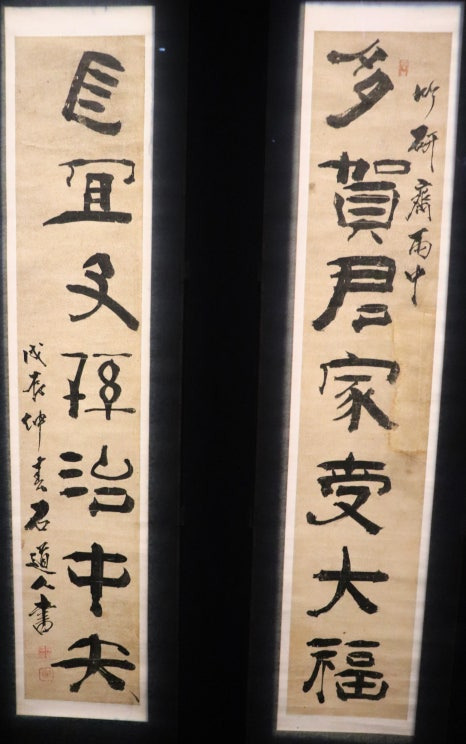 竹研齋雨中
多賀君家受大福
長宜子孫治中央
戊辰仲春石道人書